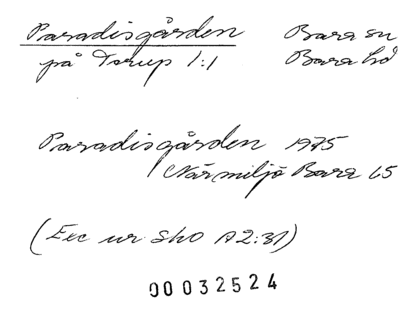 Paradisgården Bara sn
på Torup 1:1 Bara hd
Paradisgården 1975
Närmiljö Bara 65
(Exc ur Sko A2:31)
00032524